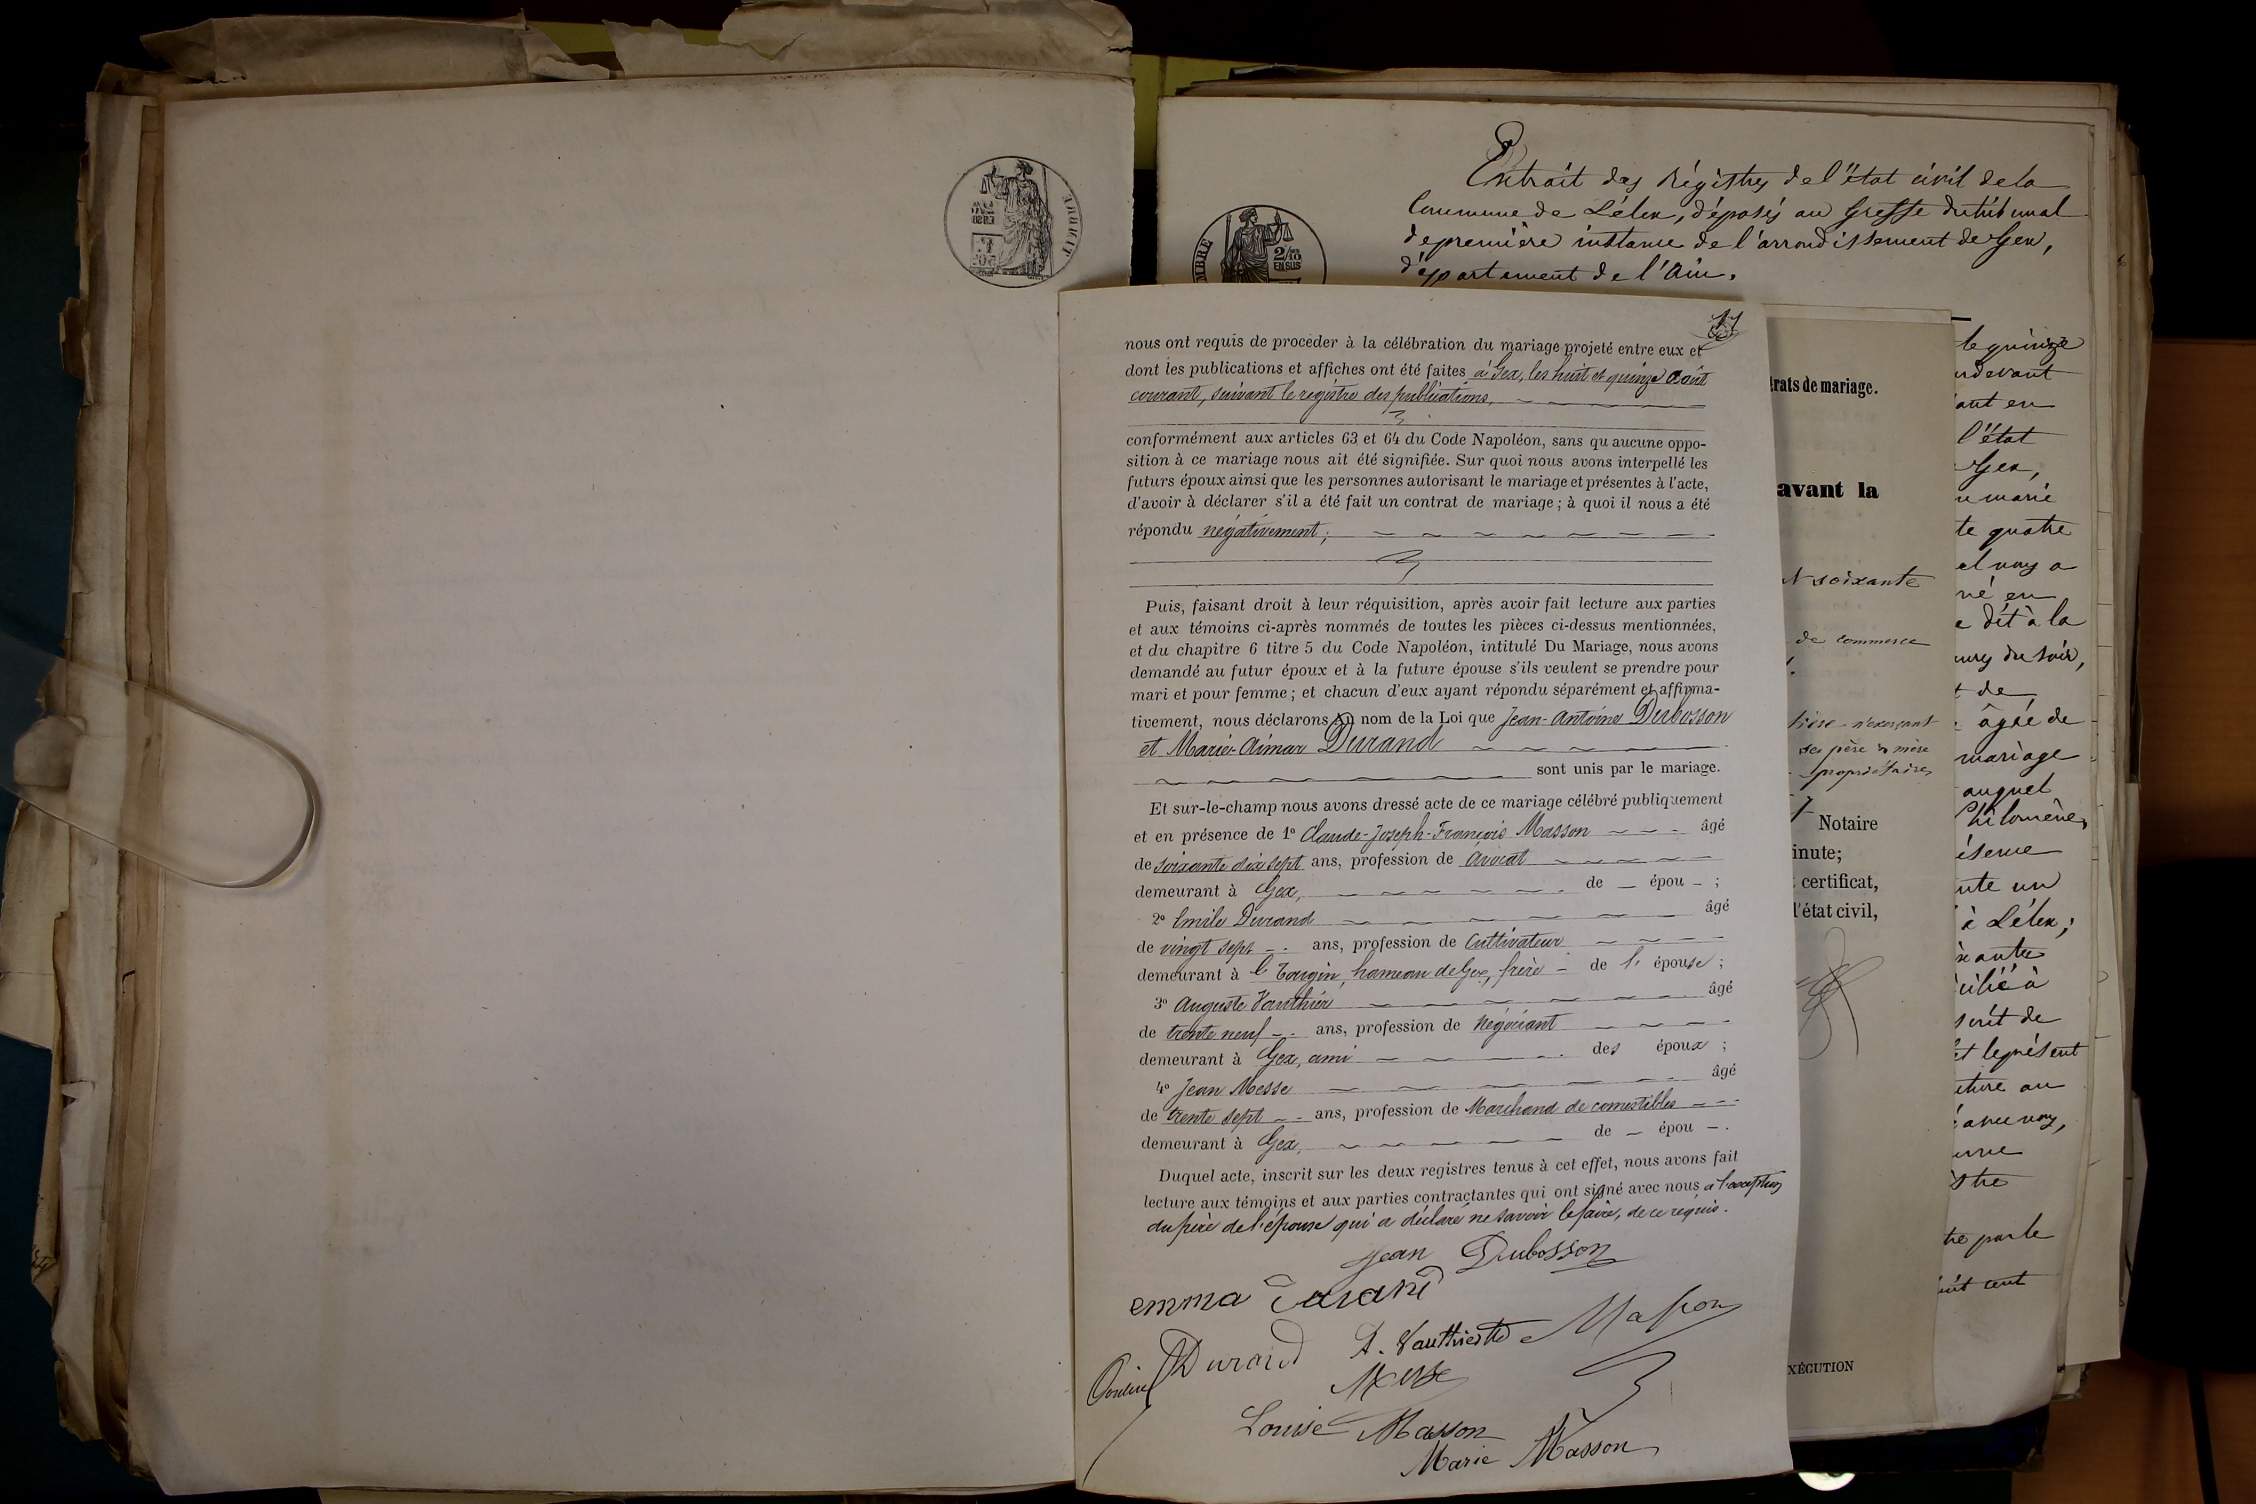 TIMBRE
2/10
EN SUS
Extrait des Régistres de l'état civil de la
Commune de Lélex, déposés au Greffe du tribunal
de première instance de l'arrondissement de Gex,
département de l'Ain.
nous ont requis de procéder à la célébration du mariage projeté entre eux et
dont les publications et affiches ont été faites à Gex, les huit et quinze Août
courant, suivant le registre des publications,
conformément aux articles 63 et 64 du Code Napoléon, sans qu'aucune oppo-
sition à ce mariage nous ait été signifiée. Sur quoi nous avons interpellé les
futurs époux ainsi que les personnes autorisant le mariage et présentes à l'acte,
d'avoir à déclarer s'il a été fait un contrat de mariage; à quoi il nous a été
répondu négativement;
Puis, faisant droit à leur réquisition, après avoir fait lecture aux parties
et aux témoins ci-après nommés de toutes les pièces ci-dessus mentionnées,
et du chapitre 6 titre 5 du Code Napoléon, intitulé Du Mariage, nous avons
demandé au futur époux et à la future épouse s'ils veulent se prendre pour
mari et pour femme; et chacun d'eux ayant répondu séparément et affirma-
tivement, nous déclarons au nom de la Loi que Jean-Antoine Dubosson
et Marie-Aimar Durand
sont unis par le mariage.
Et sur-le-champ nous avons dressé acte de ce mariage célébré publiquement
et en présence de 1º Claude-Joseph-François Masson âgé
de soixante dix sept ans, profession de Avocat
demeurant à Gex, de — épou - ;
2º Emile Durand âgé
de vingt sept ans, profession de Cultivateur
demeurant à Tougin, hameau de Gex, frère de l' épouse ;
3º Auguste Vauthier âgé
de trente neuf ans, profession de Négociant
demeurant à Gex, ami des époux ;
4º Jean Messe âgé
de trente sept ans, profession de Marchand de comestibles
demeurant à Gex, de — épou — .
Duquel acte, inscrit sur les deux registres tenus à cet effet, nous avons fait
lecture aux témoins et aux parties contractantes qui ont signé avec nous à l'exception
du père de l'épouse qui a déclaré ne savoir le faire, de ce requis.
Jean Dubosson
emma Durand
Durand A. Vauthier Masson
Messe
Louise Masson
Marie Masson
trats de mariage.
avant la
soixante
de commerce
n'exerçant
ses père & mère
propriétaires
Notaire
inute;
certificat,
l'état civil,
XÉCUTION
le quinze
devant
l'état
Gex,
marié
quatre
né en
dit à la
du soir,
de
âgée de
mariage
auquel
Philomène,
un
à Lélex;
à
de
et le présent
au
nous,
par le
cent